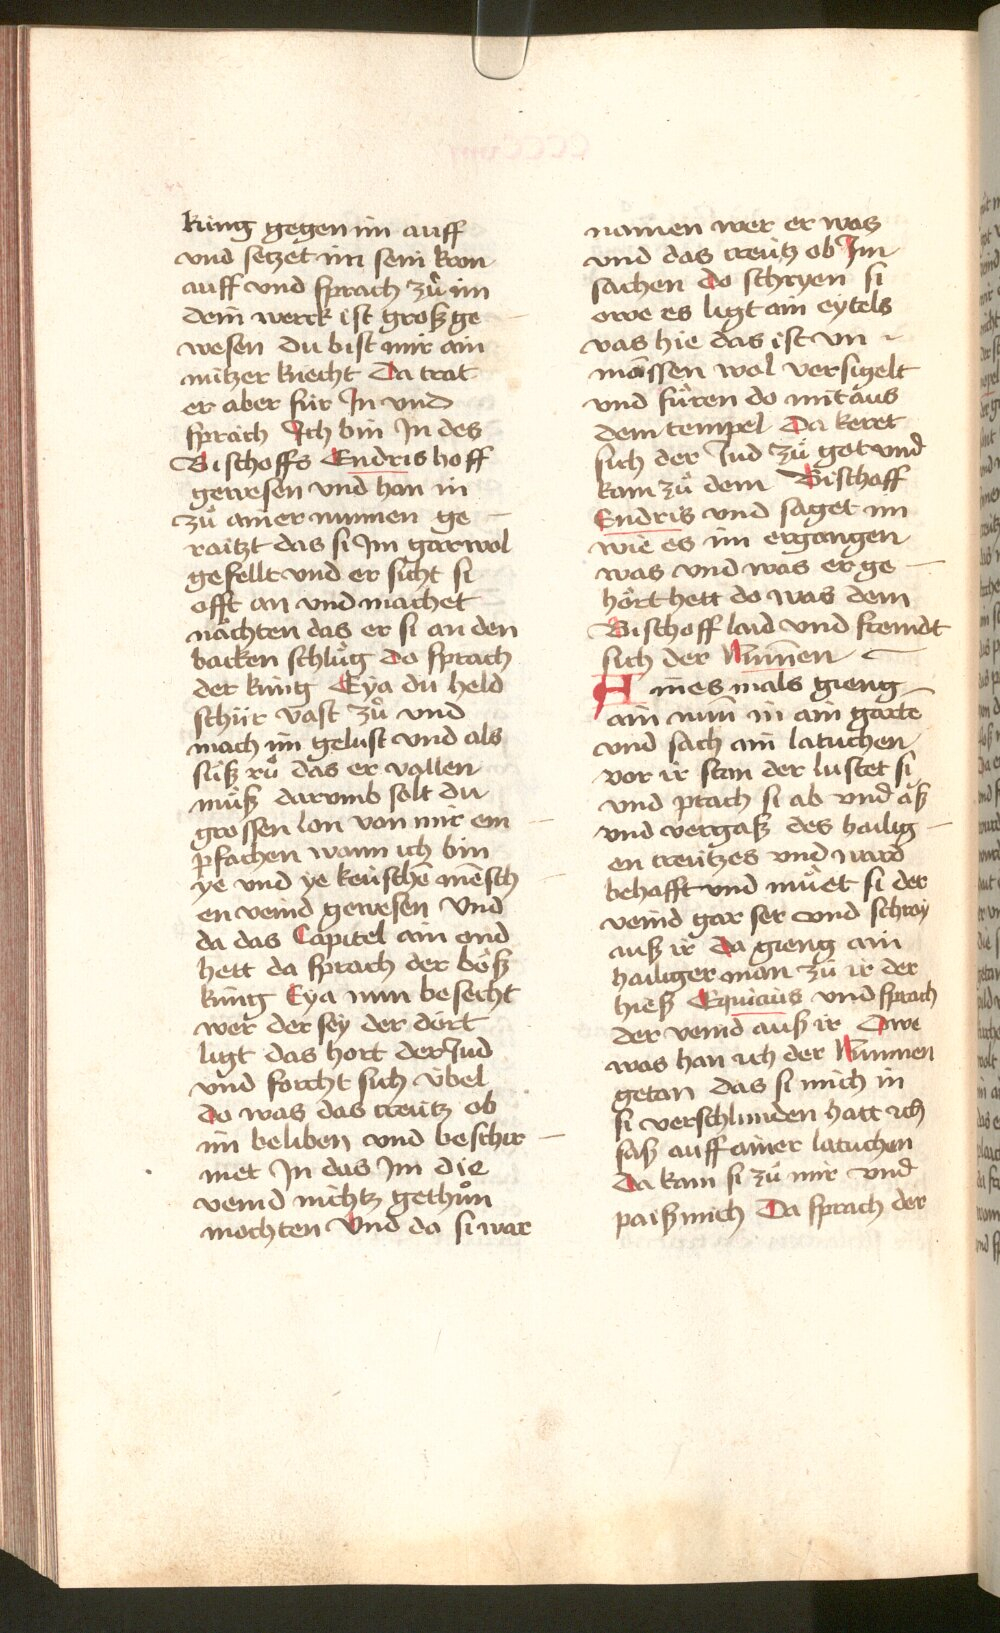 küng gegen im auff
vnd setzet im sein kron
auff vnd sprach zů im
dein werck ist groß ge
wesen du bist mir ain
nützer knecht Da trat
er aber für In vnd
sprach Ich bin In des
Bischoffs Endris hoff
gewesen vnd han in
zů ainer nunnen ge
raitzt das si Im gar wol
gefellt vnd er sicht si
offt an vnd machet
nächten das er si an den
backen schlůg do sprach
der küng Eya du held
schür vast zů vnd
mach im gelust vnd als
süß rů das er vallen
můß darvmb solt du
grossen lon von mir em
pfachen wann ich bin
ye vnd ye keuschē mēsch
en veind gewesen Vnd
da das Capitel ain end
hett da sprach der böß
küng Eya nun besecht
wer der sey der dört
ligt das hort der Jud
vnd forcht sich übel
do was das creütz ob
im beliben vnd beschir
met In das Im die
veind nichtz gethůn
mochten Vnd da si war
namen wer er was
vnd das creütz ob Im
sachen do schryen si
owe es ligt ain eytels
vas hie das ist vn
mässen wol versigelt
vnd fůren do mit aus
dem tempel Da keret
sich der Jud zů got vnd
kam zů dem Bischoff
Endris vnd saget im
wie es im ergangen
was vnd was er ge
hört hett do was dem
Bischoff laid vnd fremdt
sich der Nunnen
Aines mals gieng
ain nun in ain gartē
vnd sach ain latuchen
vor ir stan der lustet si
vnd prach si ab vnd aß
vnd vergaß des hailig
en creützes vnd ward
behafft vnd můet si der
veind gar ser vnd schray
auß ir da gieng ain
hailiger man zů ir der
hieß Equicius vnd sprach
der veind auß ir Owe
was han ich der Nunnen
getan das si mich in
si verschlunden hatt ich
saß auff ainer latuchen
Da kam si zů mir vnd
paiß mich Da sprach der